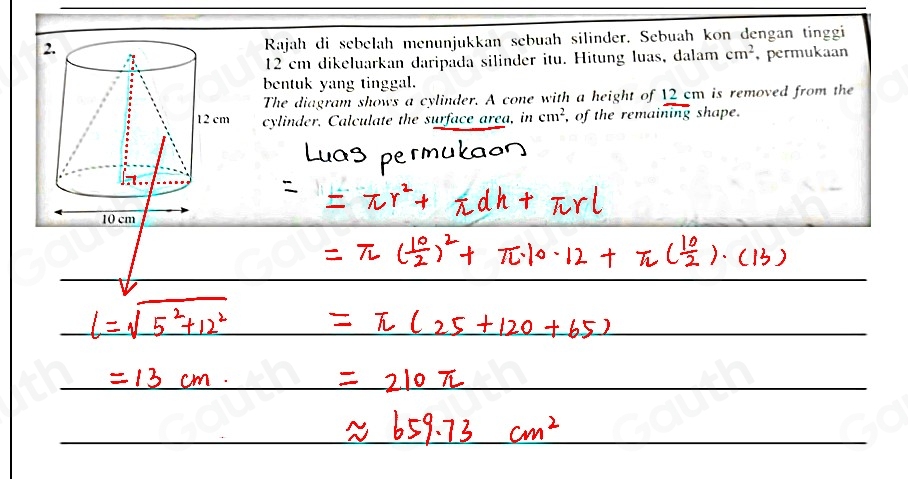 2.
Rajah di sebelah menunjukkan sebuah silinder. Sebuah kon dengan tinggi
12 cm dikeluarkan daripada silinder itu. Hitung luas, dalam cm², permukaan
bentuk yang tinggal.
The diagram shows a cylinder. A cone with a height of 12 cm is removed from the
cylinder. Calculate the surface area, in cm², of the remaining shape.
12 cm
10 cm
Luas permukaan
=
= πr² + πdh + πrl
= π (10/2)² + π·10·12 + π(10/2)·(13)
l = √5²+12²
= π (25+120+65)
= 13 cm.
= 210 π
≈ 659.73 cm²
Gauth